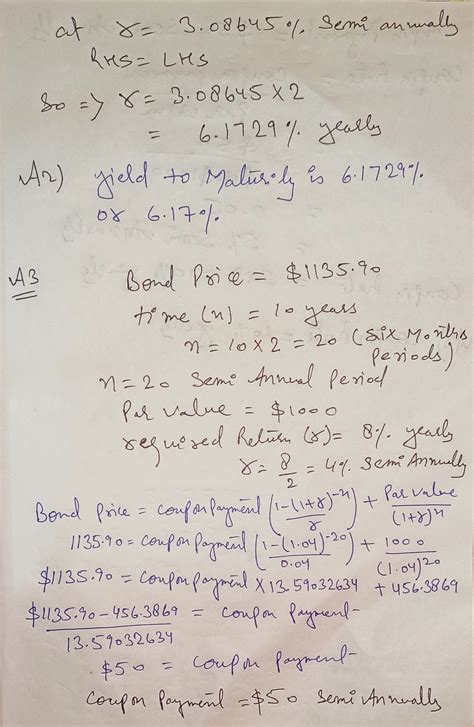 at r = 3.08645% Semi annually
RHS = LHS
So => r = 3.08645 X 2
= 6.1729% yearly
A2) yield to Maturity is 6.1729%
or 6.17%.
A3 Bond Price = $1135.90
time (n) = 10 years
n = 10 X 2 = 20 (Six Months periods)
n = 20 Semi Annual Period
Par Value = $1000
required Return (r) = 8% yearly
r = 8/2 = 4% Semi Annually
Bond Price = Coupon Payment (1-(1+r)^-n / r) + Par Value / (1+r)^n
1135.90 = Coupon Payment (1-(1.04)^-20 / 0.04) + 1000 / (1.04)^20
$1135.90 = Coupon Payment X 13.59032634 + 456.3869
$1135.90 - 456.3869 / 13.59032634 = Coupon Payment
$50 = Coupon Payment
Coupon Payment = $50 Semi Annually